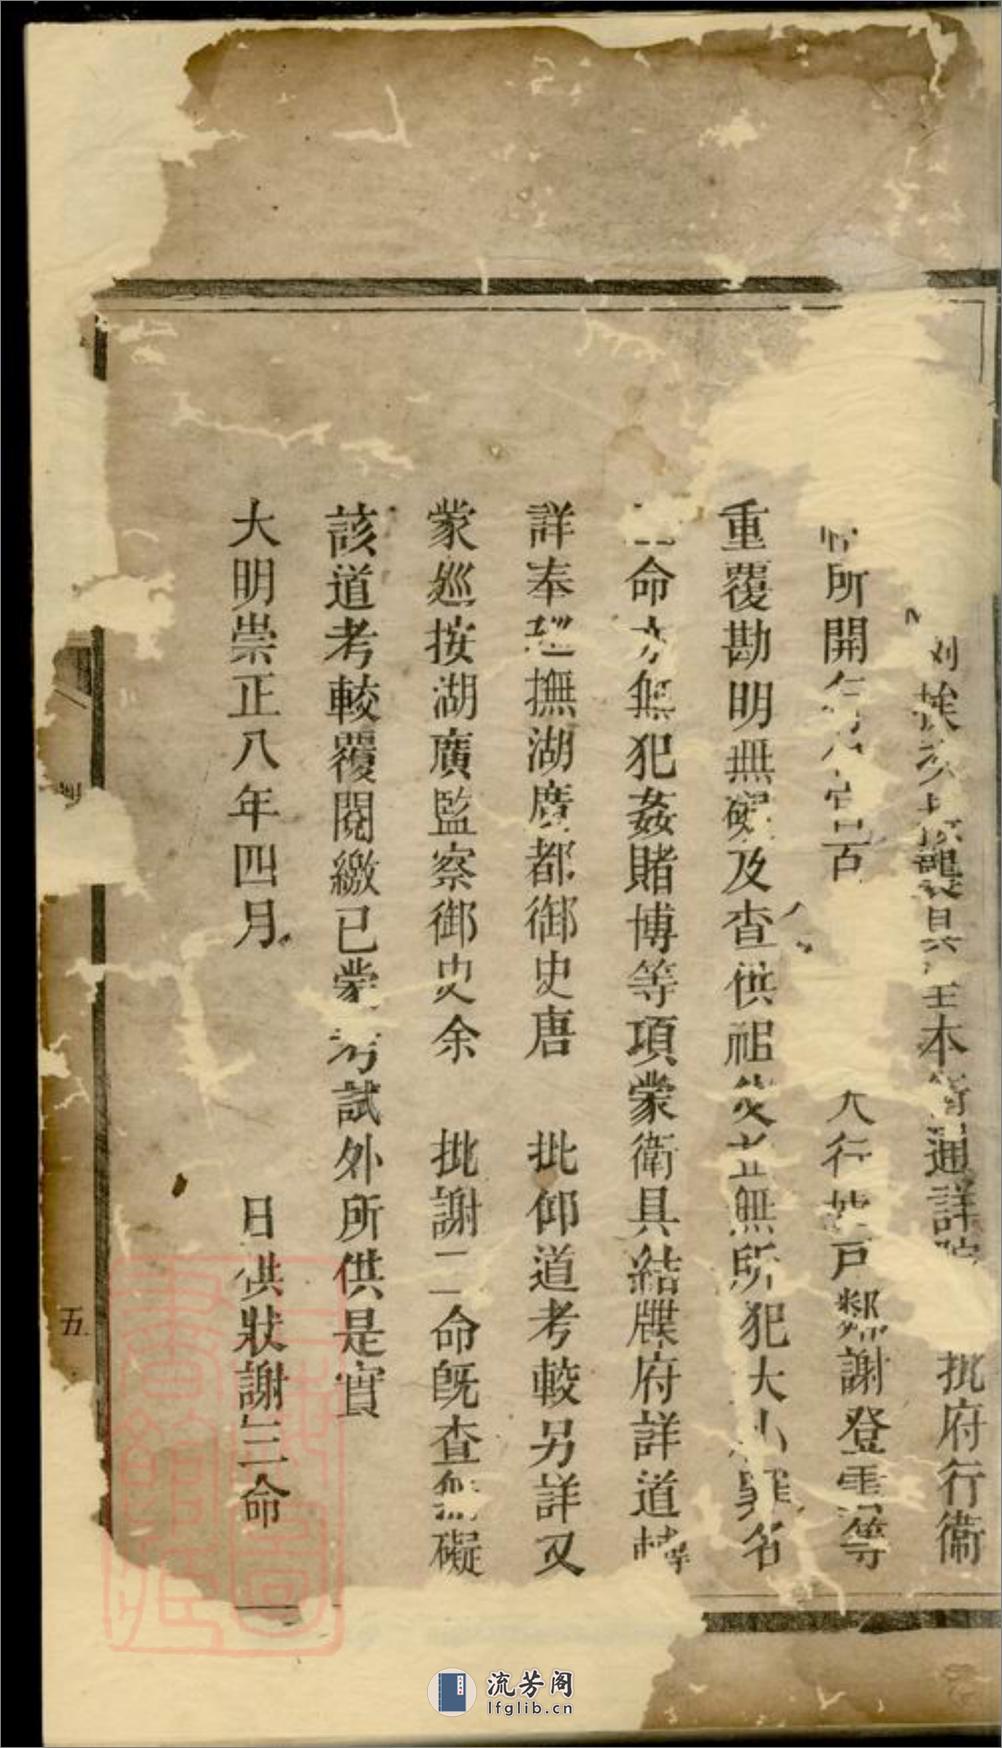 襲具 本衛通詳 批府行衛
所開 官 行 戶鄰謝登雲等
重覆勘明無礙及查供祖父並無所犯大小罪名
命亦無犯姦賭博等項蒙衛具結牒府詳道轉
詳奉巡撫湖廣都御史唐 批仰道考較另詳又
蒙巡按湖廣監察御史余 批謝三命旣查無礙
該道考較覆閱繳已蒙考試外所供是實
大明崇正八年四月 日供狀謝三命
五
流芳阁
lfglib.cn